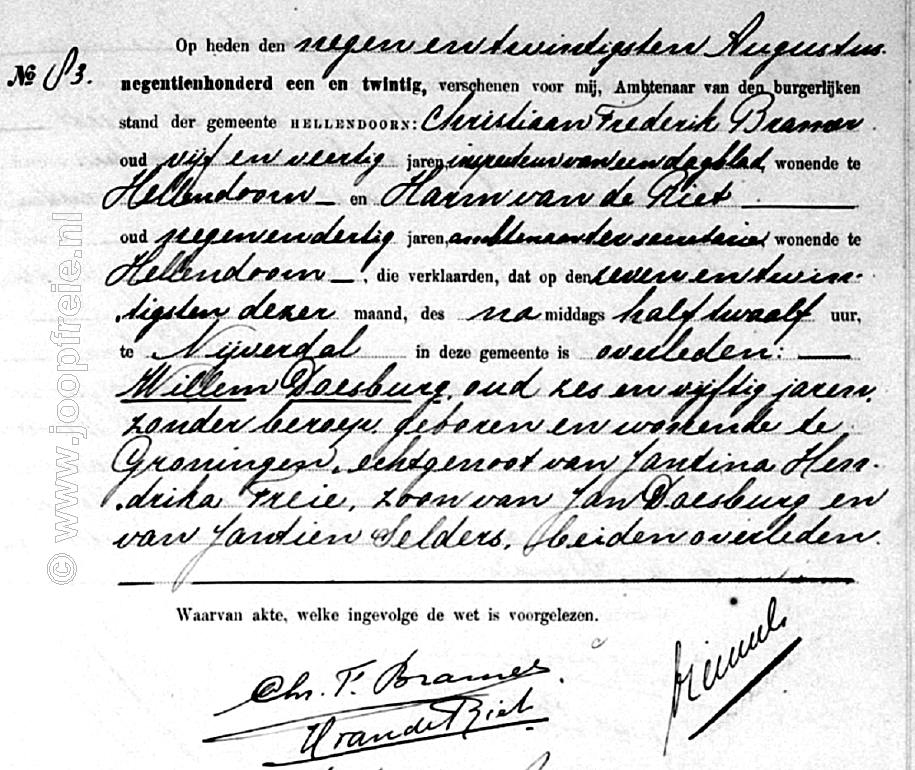 Op heden den negen en twintigsten Augustus
No 83.
negentienhonderd een en twintig, verschenen voor mij, Ambtenaar van den burgerlijken
stand der gemeente HELLENDOORN: Christiaan Frederik Bramer
oud vijf en veertig jaren, inspecteur van een dagblad, wonende te
Hellendoorn en Harm van de Riet
oud negen en dertig jaren, ambtenaar der secretarie, wonende te
Hellendoorn, die verklaarden, dat op den zeven en twin-
tigsten dezer maand, des na middags half twaalf uur,
te Nijverdal in deze gemeente is overleden:
Willem Doesburg, oud zes en vijftig jaren,
zonder beroep, geboren en wonende te
Groningen, echtgenoot van Jantina Hen-
drika Freie, zoon van Jan Doesburg en
van Jantien Selders, beiden overleden.
Waarvan akte, welke ingevolge de wet is voorgelezen.
Chr. F. Bramer
H van de Riet
© www.joopfreie.nl